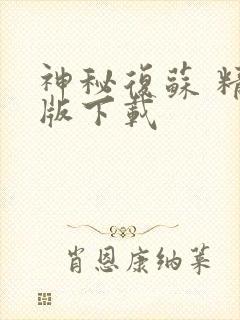 神秘復蘇 精
版下載
肖恩康纳莱